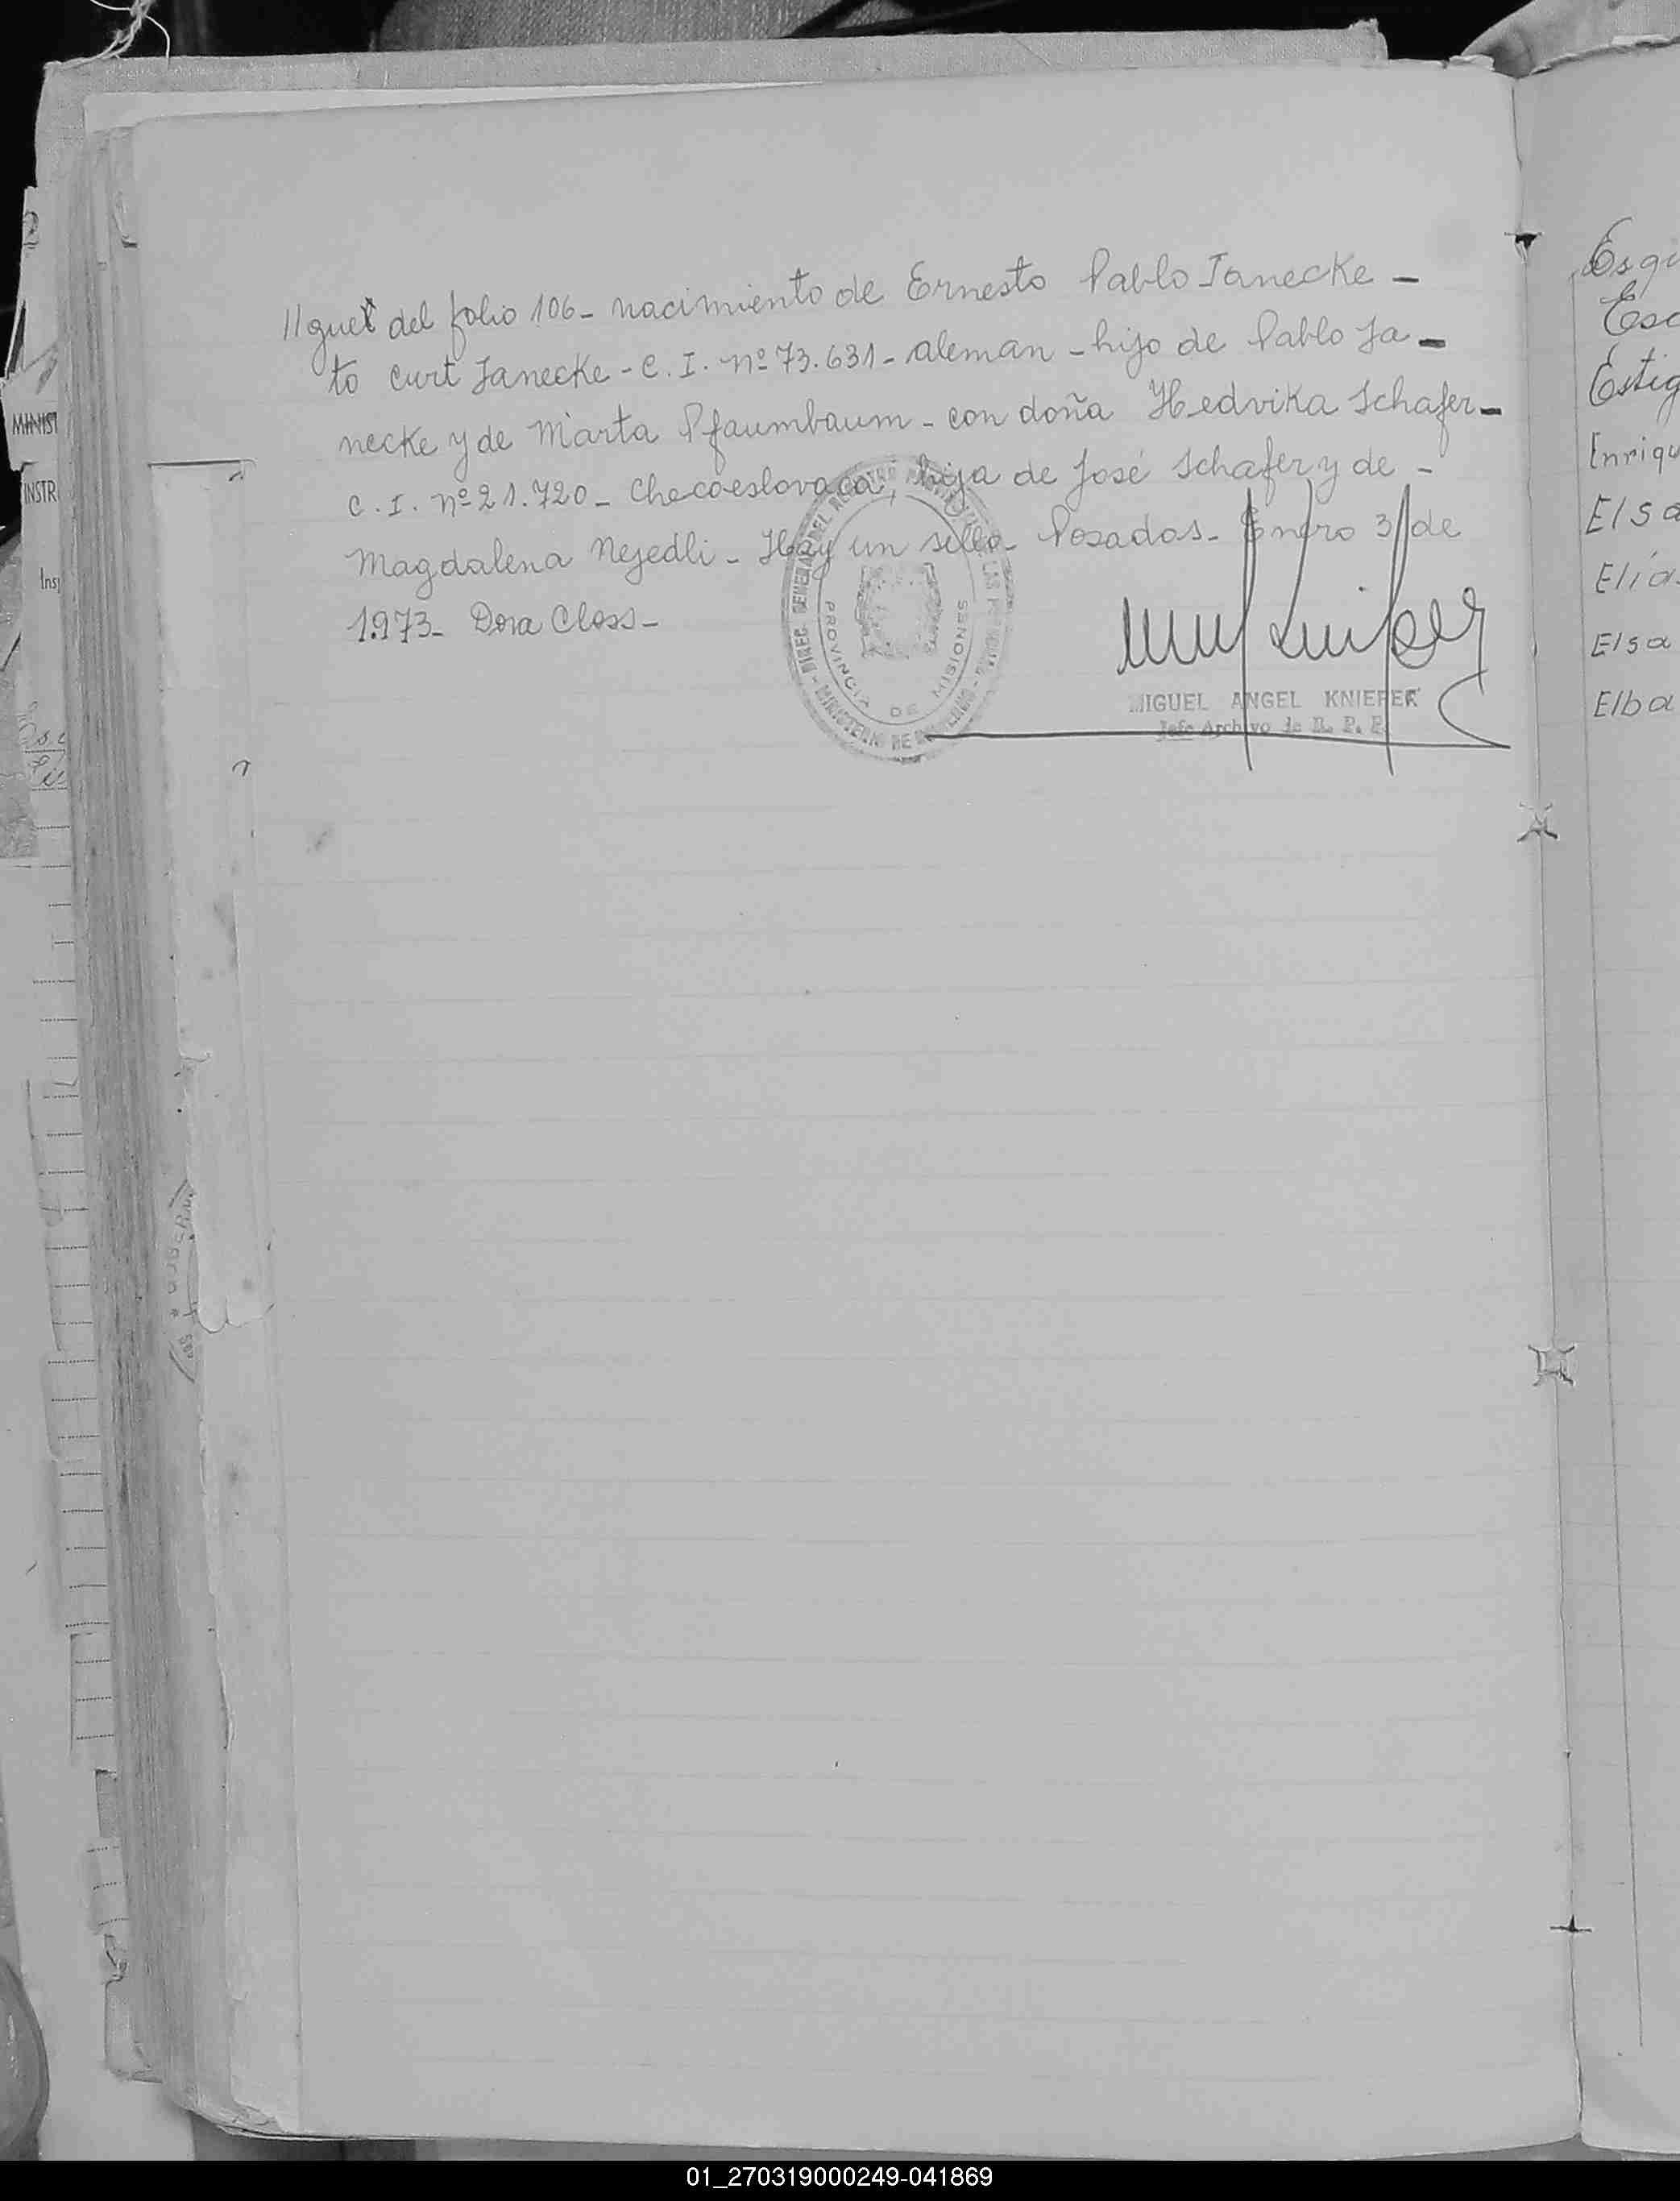 //guer del folio 106- nacimiento de Ernesto Pablo Janecke -
to Curt Janecke - C. I. nº 73.631 - aleman - hijo de Pablo Ja -
necke y de Marta Pfaumbaum - con doña Hedvika Schafer -
C. I. nº 21.720 - Checoeslovaca, hija de José Schafer y de -
Magdalena Nejedli - Hay un sello - Posadas - Enero 3 de
1.973 - Dora Closs -
PROVINCIA DE MISIONES
MIGUEL ANGEL KNIEPER
Jefe Archivo de R. P. P.
MINIST
INSTR
Insp
Esqu
Esc
Estig
Enriqu
Elsa
Elías
Elsa
Elba
01_270319000249-041869